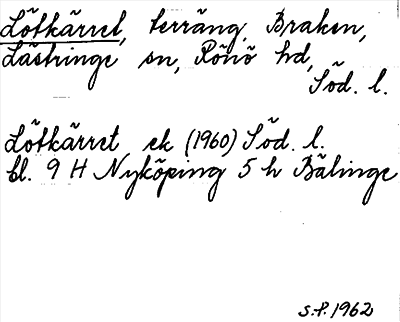 Lötkärret, terräng, Braken,
Lästringe sn, Rönö hd,
Söd. l.
Lötkärret ek (1960) Söd. l.
bl. 9 H Nyköping 5 h Bälinge
s.f. 1962